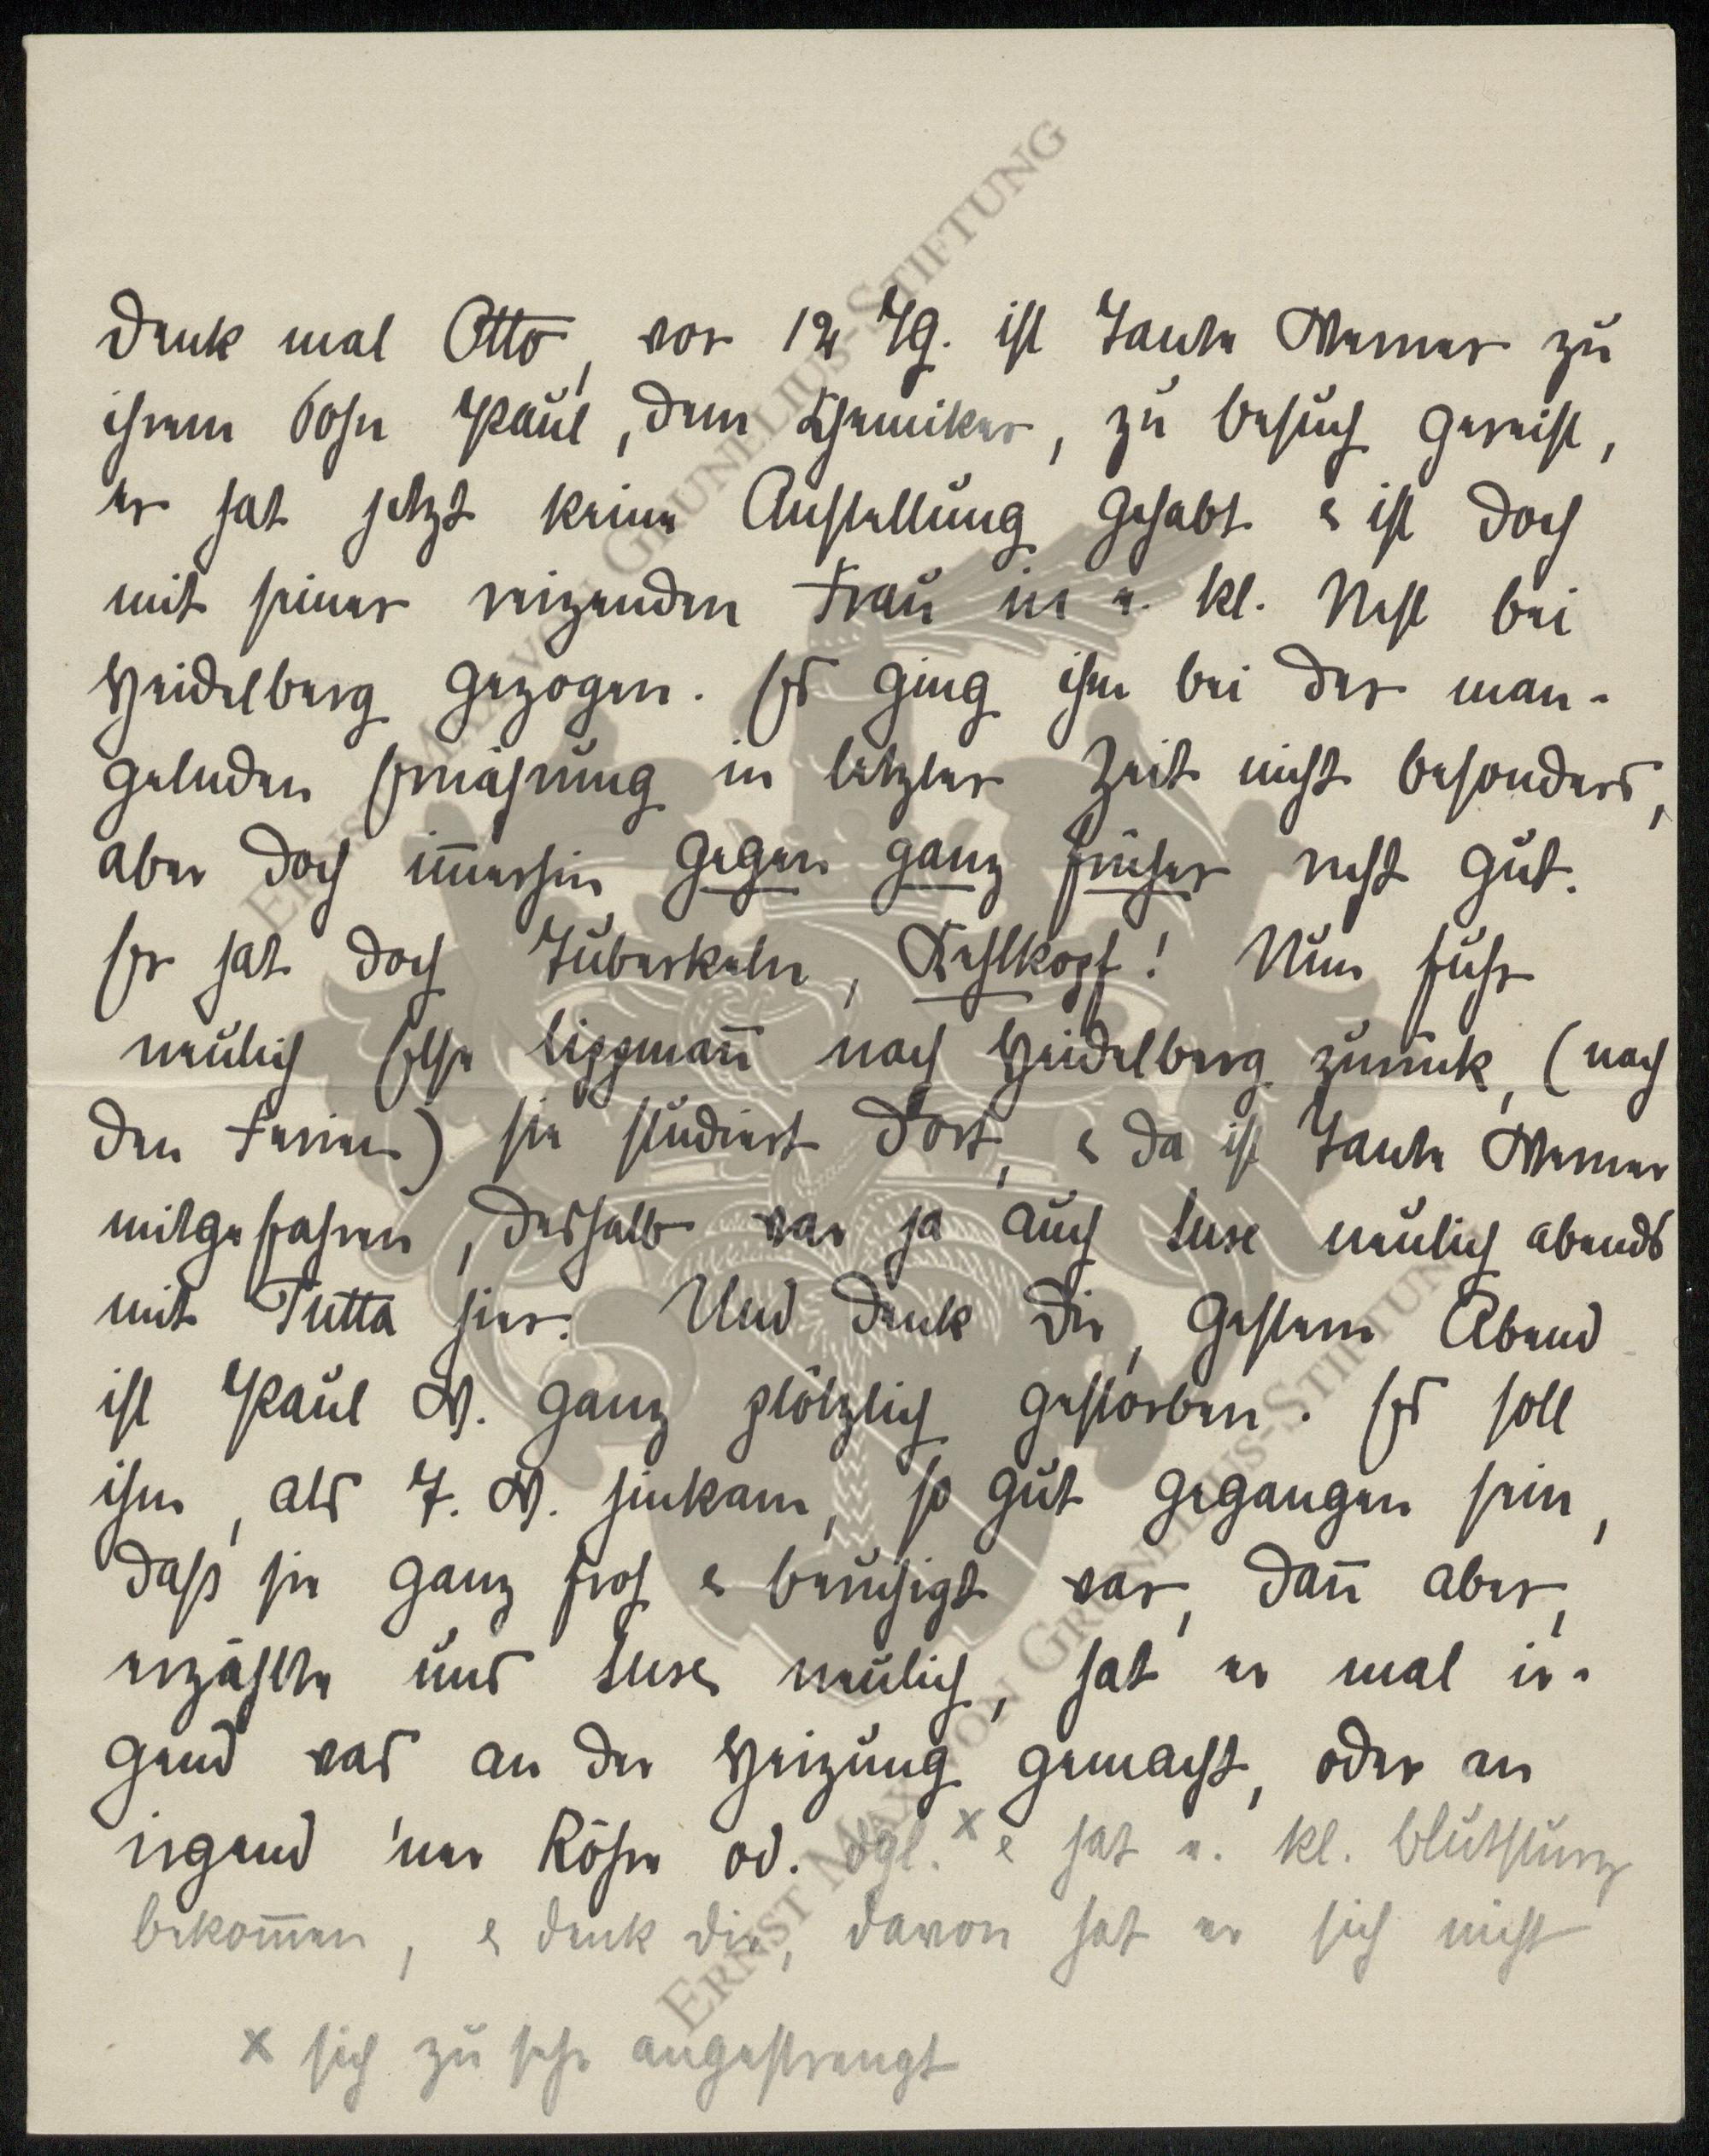 Denk mal Otto, vor 12 Tg. ist Tante Werner zu
ihrem Sohn Paul, dem Chemiker, zu Besuch gereist,
er hat jetzt keine Anstellung gehabt & ist doch
mit seiner reizenden Frau in e. kl. Nest bei
Heidelberg gezogen. Es ging ihm bei der man-
gelnden Ernährung in letzter Zeit nicht besonders,
aber doch im̅erhin gegen ganz früher recht gut.
Er hat doch Tuberkeln, Kehlkopf! Nun fuhr
neulich Else Lippman̅ nach Heidelberg zurück, (nach
den Ferien) sie studiert dort, & da ist Tante Werner
mitgefahren, deshalb war ja auch Luse neulich abends
mit Tutta hier. Und denk Dir, gestern Abend
ist Paul W. ganz plötzlich gestorben. Es soll
ihm, als T. W. hinkam, so gut gegangen sein,
daß sie ganz froh & beruhigt war, dan̅ aber,
erzählte uns Luse neulich, hat er mal ir-
gend was an der Heizung gemacht, oder an
irgend 'ner Röhre od. dgl. x & hat e. kl. Blutsturz
bekom̅en, & denk dir, davon hat er sich nicht
x sich zu sehr angestrengt
ERNST MAX VON GRUNELIUS-STIFTUNG
ERNST MAX VON GRUNELIUS-STIFTUNG